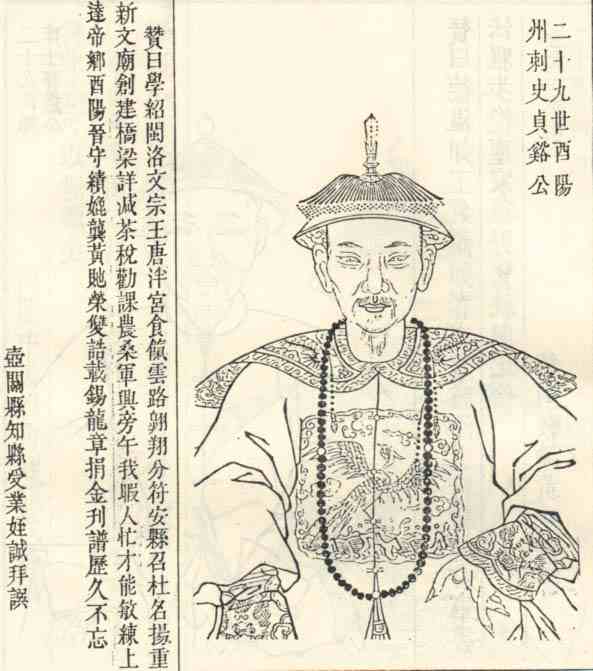 二十九世酉陽
州刺史貞谿公
贊曰學紹閩洛文宗王唐泮宮食餼雲路翱翔分符安縣召杜名揚重
新文廟創建橋梁詳減茶稅勸課農桑軍興旁午我暇人忙才能敏練上
達帝鄉酉陽晉守績媲龔黃貤榮雙誥載錫龍章捐金刊譜歷久不忘
壺關縣知縣受業姪誠拜譔